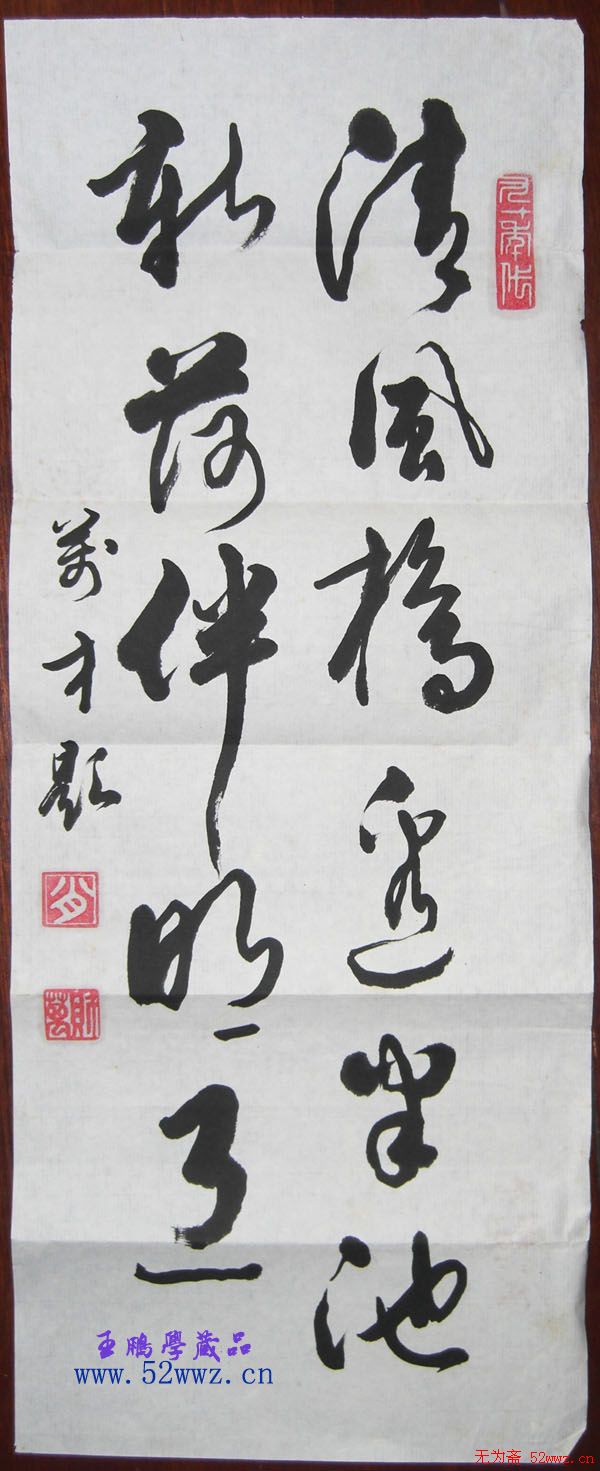 清風橋邊池
新荷伴明
萬才題
王鵬學藏品
www.52wwz.cn
无为斋 52wwz.cn